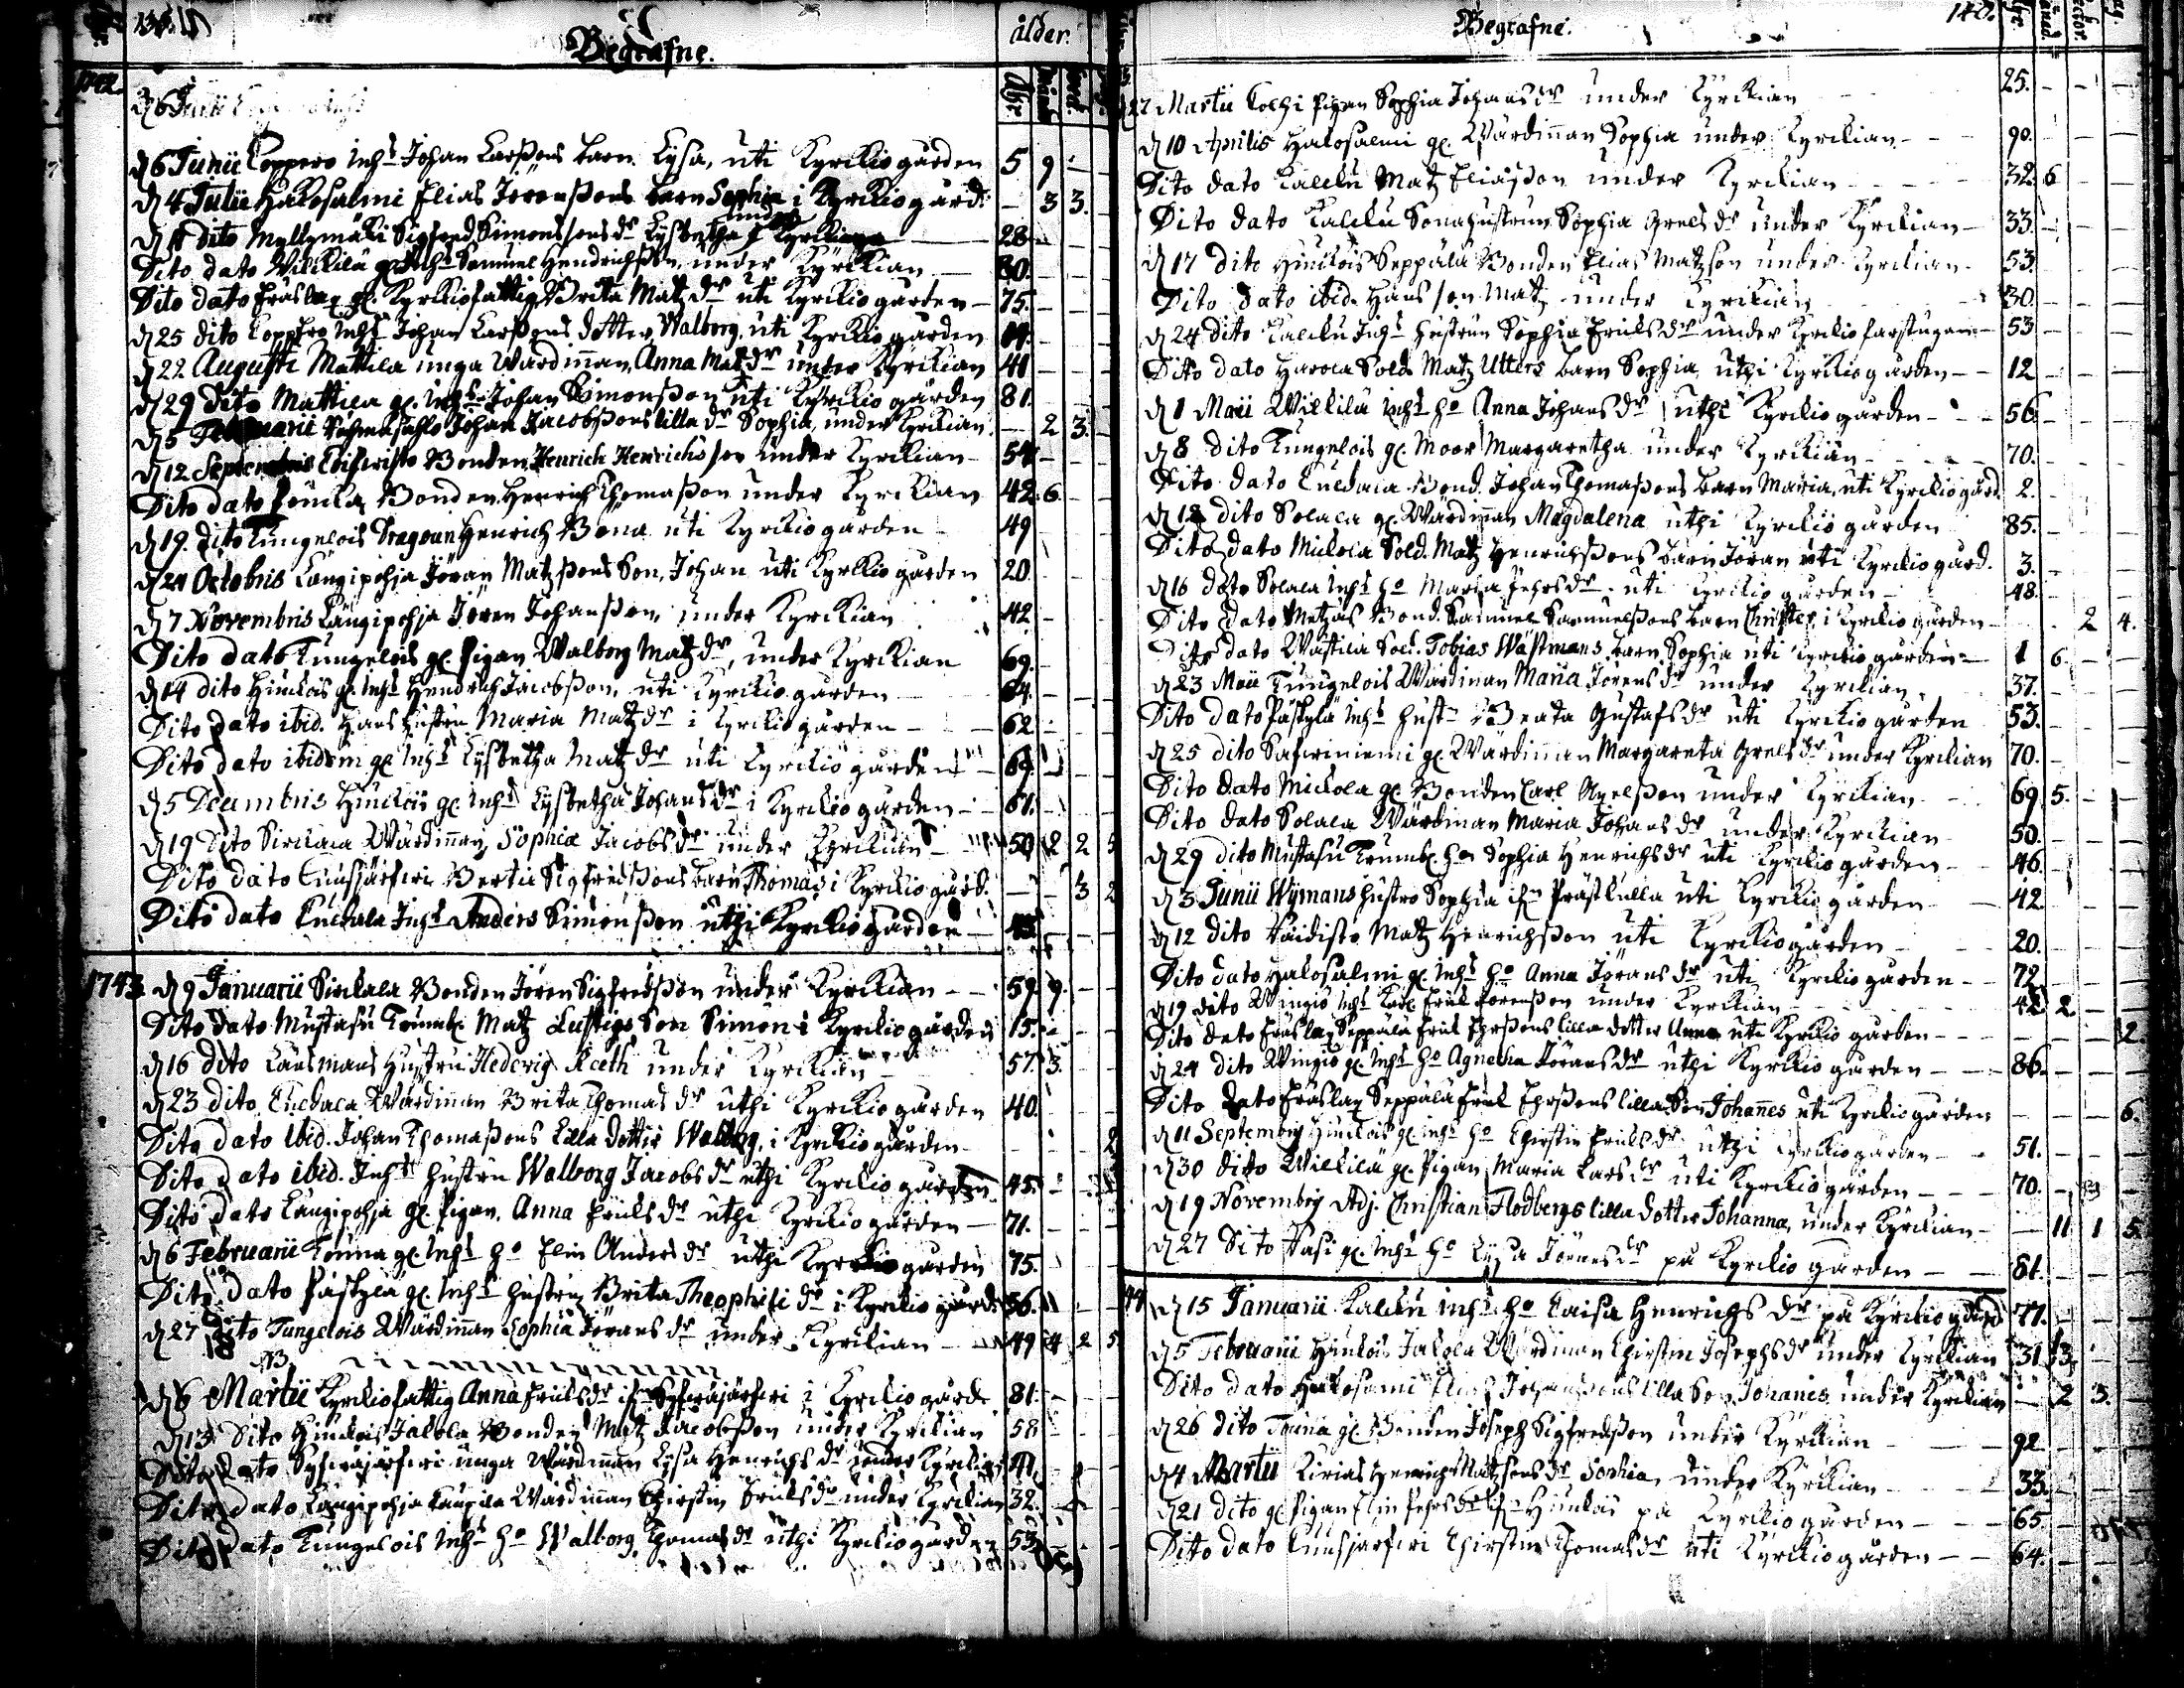 Begrafne.
ålder.
1742.
d 6 Junii Coppero Inhs Johan Larßons barn Lysa, uti Kyrkiogården 5 9
d 4 Julii Halosalmi Elias Jörensßons barn Sophia i Kyrkiogård: 3 3.
d 11 dito Myllymäki Sigfred Simonssons dr Lysbetha under Kyrkian 28
Dito dato Vilckilä gl. Inhs Samuel Hendrichßon under Kyrkian 30.
Dito dato Fräslax gl. Kyrkiofattig Brita Matz dr uti Kyrkiogården 75.
d 25 dito Coppero Inhs Johan Larßons dotter Walborg, uti Kyrkiogården
d 22 Augusti Mattila unga Wärdinnan Anna Matz dr under Kyrkian 41
d 29 dito Mattila gl. Inhs Johan Simonsßon uti Kyrkiogården 81.
d 5 Johan Jacobßons lilla dr Sophia, under Kyrkian. 2 3.
d 12 Septembris Bonden Henrich Henrichsson under Kyrkian 54
Dito dato Bonden Henrich Thomaßon under Kyrkian 42. 6.
d 19. dito Tungelois Dragoun Henrich Böna uti Kyrkiogården 49
d 24 Octobris Långipohja Jöran Matzßons Son, Johan uti Kyrkiogården 20.
d 7 Novembris Långipohja Jören Johanßon under Kyrkian 42
Dito dato Tungelois gl. Pigan Walborg Matz dr, under Kyrkian 69.
d 14 dito Hinclois gl. Inhs Hendrich Jacobßon, uti Kyrkiogården 64.
Dito dato ibid. Hans Hustru Maria Matz dr i Kyrkiogården 62
Dito dato ibidem gl. Inhs Lysbetha Matz dr uti Kyrkiogården 69.
d 5 Decembris Hinclois gl. Inhs Lysbetha Johans dr i Kyrkiogården 61.
d 19 Dito Sirckala Wärdinnan Sophia Jacobs dr under Kyrkian 50 2 2 5
Dito dato Cuusjärfwi Bertil Sigfredßons barn Thomas i Kyrkiogård. 3 2
Dito dato Cuckala Inhs Anders Simonßon uthi Kyrkiogården
1743. d 9 Januarii Sirckala Bonden Jören Sigfredsßon under Kyrkian 59. 9.
Dito dato Mustasu Trumbl. Matz Lustigs Son Simon i Kyrkiogården 15.
d 16 dito Länsmans Hustru Hedevig Keeth under Kyrkian 57. 3.
d 23 dito Cuckala Wärdinnan Brita Thomas dr uthi Kyrkiogården 40.
Dito dato ibid. Johan Thomaßons Lilla dotter Walborg, i Kyrkiogården 2
Dito dato ibid. Inhs Hustru Walborg Jacobs dr uthi Kyrkiogården 45.
Dito dato Långipohja gl. Pigan, Anna Erichs dr uthi Kyrkiogården 71.
d 6 Februarii Touna gl. Inhs ho Elin Anders dr uthi Kyrkiogården 75.
Dito dato Påskylä gl. Inhs hustru Brita Theophili dr i Kyrkiogård 56.
d 27 dito Tungelois Wärdinnan Sophia Jörans dr under Kyrkian 49 4 2 5
NB.
d 6 Martii Kyrkiofattig Anna Erichs dr ifr Syfwäjärfwi i Kyrkiogård 81.
d 13 Dito Hinclois Jalola Bonden Matz Jacobßon under Kyrkian 58
Dito dato Syfwäjärfwi unga Wärdinnan Lysa Henrichs dr under Kyrkian 41.
Dito dato Långipohja Caupila Wärdinnan Christin Erichs dr under Kyrkian 32.
Dito dato Tungelois Inhs ho Walborg Thomas dr uthi Kyrkiogården 53.
Begrafne.
140.
27 Martii Pigan Sophia Johans dr under Kyrkian 25.
d 10 Aprilis Halosalmi gl. Wärdinnan Sophia under Kyrkian 90.
Dito dato Calcku Matz Eliaßon under Kyrkian 32. 6
Dito dato Calcku Sonahustrun Sophia Grels dr under Kyrkian 33.
d 17 dito Hinclois Seppälä Bonden Elias Matzson under Kyrkian 53.
Dito dato ibid. Hans son Matz under Kyrkian 30.
d 24 dito Calcku Inhs hustrun Sophia Erichs dr under Kyrkiofarstugan 53
Dito dato Harola Sold. Matz Utters barn Sophia, uthi Kyrkiogården 12
d 1 Maii Willkilä Inhs ho Anna Johans dr uthi Kyrkiogården 56
d 8 dito Tungelois gl. Moor Margaretha under Kyrkian 70.
Dito dato Cuckala Bond. Johan Thomaßons barn Maria, uti Kyrkiogård 2.
d 12 dito Solala gl. Wärdinnan Magdalena uthi Kyrkiogården 85.
Dito dato Mickola Sold. Matz Henrichsßons barn Jöran uti Kyrkiogård. 3.
d 16 dato Solala Inhs ho Maria Pehrs dr uti Kyrkiogården 48.
Dito dato Metzäs Bond. Samuel Samuelßons barn Christer i Kyrkiogården 2 4.
Dito dato Wästilä Sold. Tobias Wästmans barn Sophia uti Kyrkiogården 1 6.
d 23 Maii Tungelois Wärdinnan Maria Jörens dr under Kyrkian 37.
Dito dato Påskylä Inhs hustr Beata Gustafs dr uti Kyrkiogården 53.
d 25 dito Safwiniemi gl. Wärdinnan Margareta Grels dr under Kyrkian 70.
Dito dato Mickola gl. Bonden Carl Axelßon under Kyrkian 69. 5.
Dito dato Solala Wärdinnan Maria Johans dr under Kyrkian 50.
d 29 dito Mustasu Trumbl. ho Sophia Henrichs dr uti Kyrkiogården 46
d 3 Junii Wijmans hustro Sophia ifr Präst uti Kyrkiogården 42
d 12 dito Matz Henrichsßon uti Kyrkiogården 20.
Dito dato Halosalmi gl. Inhs ho Anna Jörans dr uti Kyrkiogården 72
d 19 dito Wingiö Inhs Karl Erich Jörensßon under Kyrkian 42 2.
Dito dato Fräslax Seppälä Erich Ehrßons lilla dotter Anna uti Kyrkiogården 2.
d 24 dito Wingiö gl. Inhs ho Agnetha Jörans dr uthi Kyrkiogården 86.
Dito dato Fräslax Seppälä Erich Ehrßons lilla Son Johannes uti Kyrkiogården 6.
d 11 Septembr Hinclois gl. Inhs ho Christin Erichs dr uthi Kyrkiogården 51.
d 30 dito Willkilä gl. Pigan Maria Lars dr uti Kyrkiogården 70.
d 19 Novembr Adj. Christian Flodbergs lilla dotter Johanna, under Kyrkian 11 1 5.
d 27 Dito Pasi gl. Inhs ho Lysa Jörans dr på Kyrkiogården 81.
44 d 15 Januarii Calcku Inhs ho Caisa Henrichs dr på Kyrkiogård 77.
d 5 Februarii Hinclois Jalola Wärdinnan Christin Josephs dr under Kyrkian 31
Dito dato Halosalmi Elias lilla Son Johannes under Kyrkian 2 3.
d 26 dito Touna gl. Bonden Joseph Sigfredßon under Kyrkian 92
d 4 Martii Kirias Henrich Matzsons dr Sophia under Kyrkian 33.
d 21 dito gl. Pigan Elin Pehrs dr ifr Hinclois på Kyrkiogården 65.
Dito dato Cuusjärfwi Christin Thomas dr uti Kyrkiogården 64.